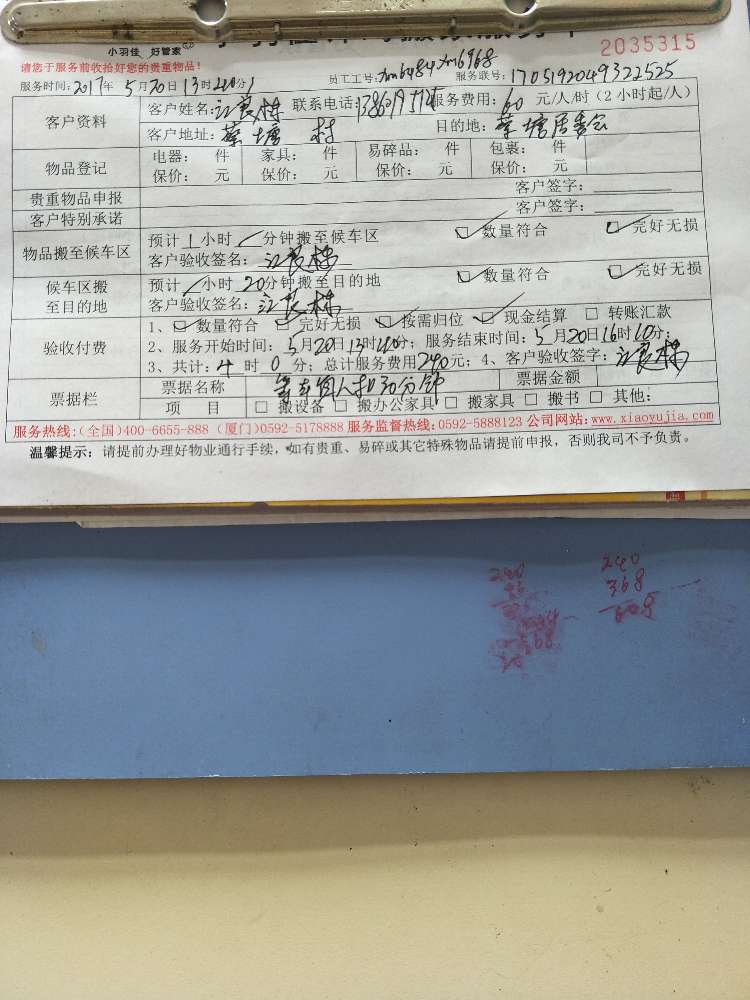 小羽佳 好管家
2035315
请您于服务前收拾好您的贵重物品!
员工工号: xm6484 xm6968 服务联号: 1705192049322525
服务时间: 2017年 5月20日13时40分
客户资料 客户姓名: 江良栋 联系电话: 服务费用: 60 元/人/时 (2小时起/人)
客户地址: 蔡塘 村 目的地: 蔡塘居委会
物品登记 电器: 件 家具: 件 易碎品: 件 包裹: 件
保价: 元 保价: 元 保价: 元 保价: 元
贵重物品申报 客户签字:
客户特别承诺 客户签字:
物品搬至候车区 预计 1 小时 分钟搬至候车区 数量符合 完好无损
客户验收签名: 江良栋
候车区搬至目的地 预计 小时 20分钟搬至目的地 数量符合 完好无损
客户验收签名: 江良栋
验收付费 1、 数量符合 完好无损 按需归位 现金结算 转账汇款
2、服务开始时间: 5月20日13时40分; 服务结束时间: 5月20日16时10分;
3、共计: 4 时 0 分; 总计服务费用240元; 4、客户验收签字: 江良栋
票据栏 票据名称 票据金额
项 目 搬设备 搬办公家具 搬家具 搬书 其他:
服务热线:(全国)400-6655-888 (厦门)0592-5178888 服务监督热线:0592-5888123 公司网站:www.xiaoyujia.com
温馨提示: 请提前办理好物业通行手续, 如有贵重、易碎或其它特殊物品请提前申报, 否则我司不予负责。
240
368
608